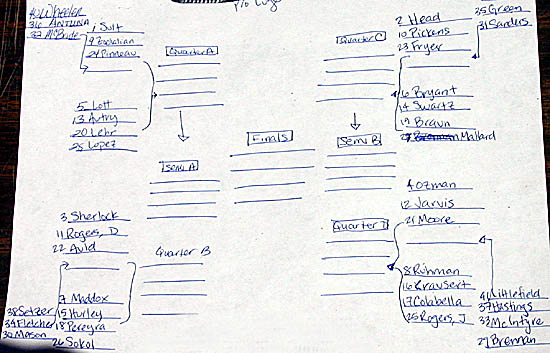 40 Wheeler
36 Antunna
32 McBride
1 Suit
9
24 Pindeau
5 Lott
13 Autry
20 Lehr
25 Lopez
Quarter A
Semi A
Finals
Quarter C
Semi B
2 Head
10 Pickens
23 Fryer
35 Green
31 Sanders
Bryant
14 Swartz
19 Braun
Mallard
3 Sherlock
11 Rogers, D
22 Avid
Quarter B
7 Maddox
15 Hurley
18 Pereyra
26 Sokol
38 Setzer
34 Fletcher
30 Mason
4 Ozman
12 Jarvis
21 Moore
Quarter D
8 Ruhman
16 Krausert
17 Colabella
25 Rogers, J
Littlefield
37 Hastings
33 McIntyre
29 Brennan